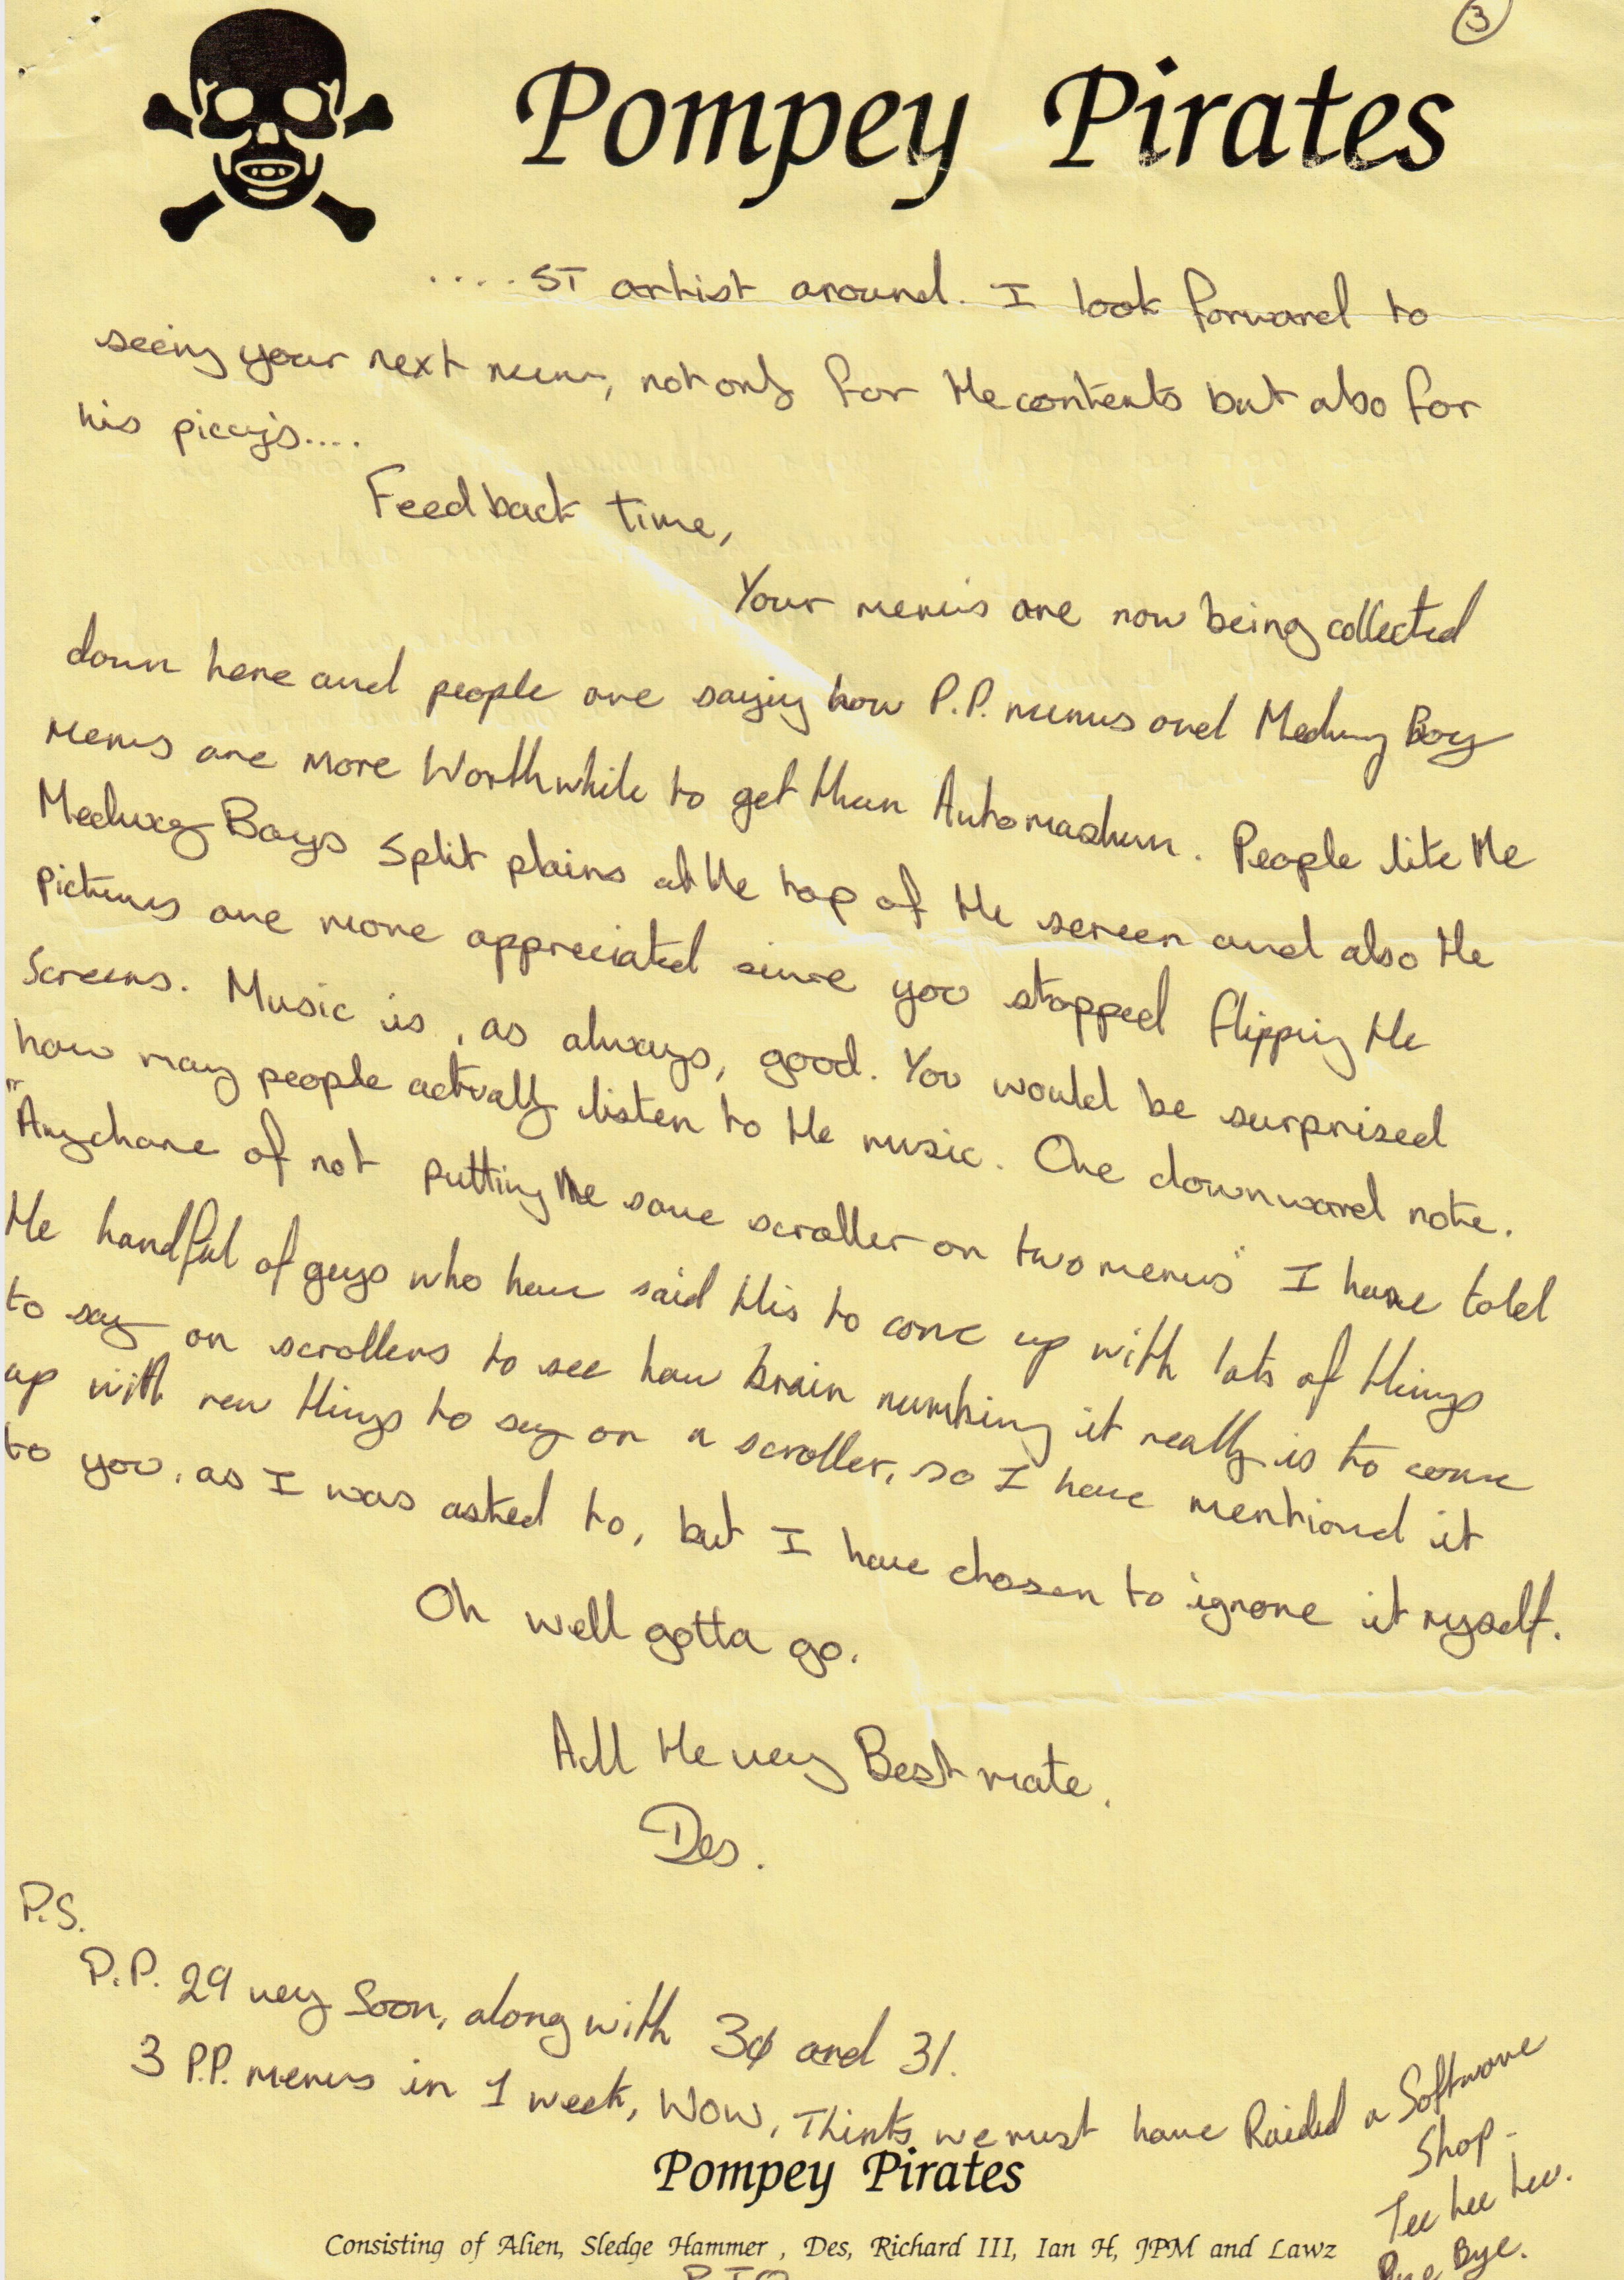 3
Pompey Pirates
..... ST artist around. I look forward to
seeing your next menu, not only for the contents but also for
his piccy's....
Feedback time,
Your menus are now being collected
down here and people are saying how P.P. menus and Medway Boy
Menus are more Worthwhile to get than Automation. People like the
Medway Boys Split plains at the top of the screen and also the
pictures are more appreciated since you stopped flipping the
Screens. Music is, as always, good. You would be surprised
how many people actually listen to the music. One downward note.
"Anychance of not putting the same scroller on two menus" I have told
the handful of guys who have said this to come up with lots of things
to say on scrollers to see how brain numbing it really is to come
up with new things to say on a scroller, so I have mentioned it
to you, as I was asked to, but I have chosen to ignore it myself.
Oh well gotta go.
All the very Best mate.
Des.
P.S.
P.P. 29 very Soon, along with 30 and 31.
3 P.P. menus in 1 week, Wow, Thinks we must have Raided a Software
Shop.
Tee hee hee.
Bye Bye.
Pompey Pirates
Consisting of Alien, Sledge Hammer , Des, Richard III, Ian H, JPM and Lawz
P.T.O